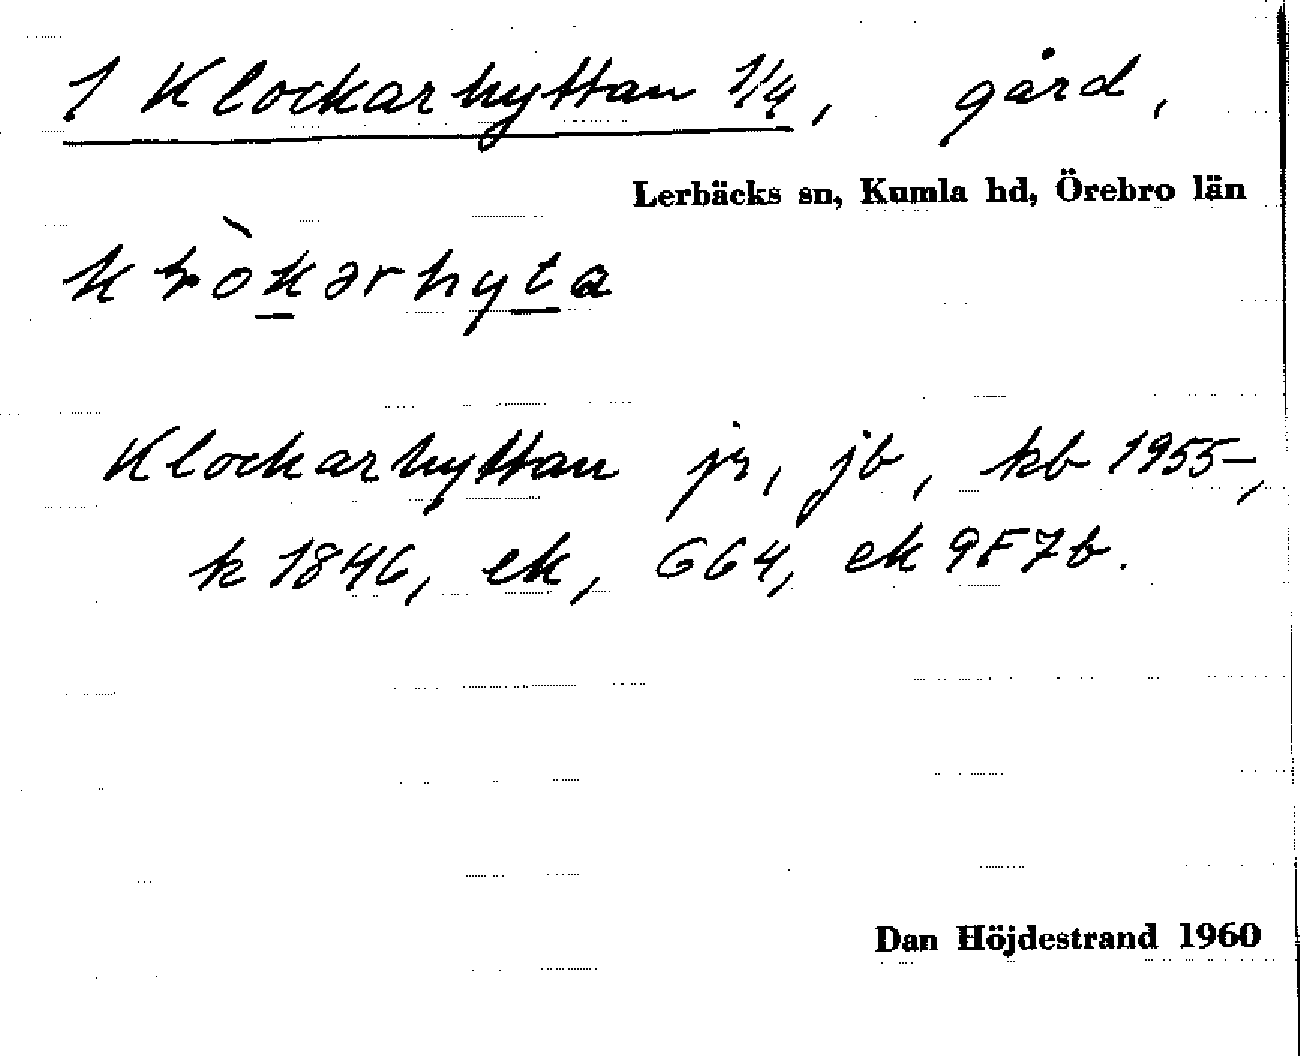 1 Klockarhyttan 1/4, gård,
Lerbäcks sn, Kumla hd, Örebro län
kɽòk̲ərhyt̲a
Klockarhyttan jr, jb, kb 1955-,
k 1846, ek, G64, ek 9F7b.
Dan Höjdestrand 1960